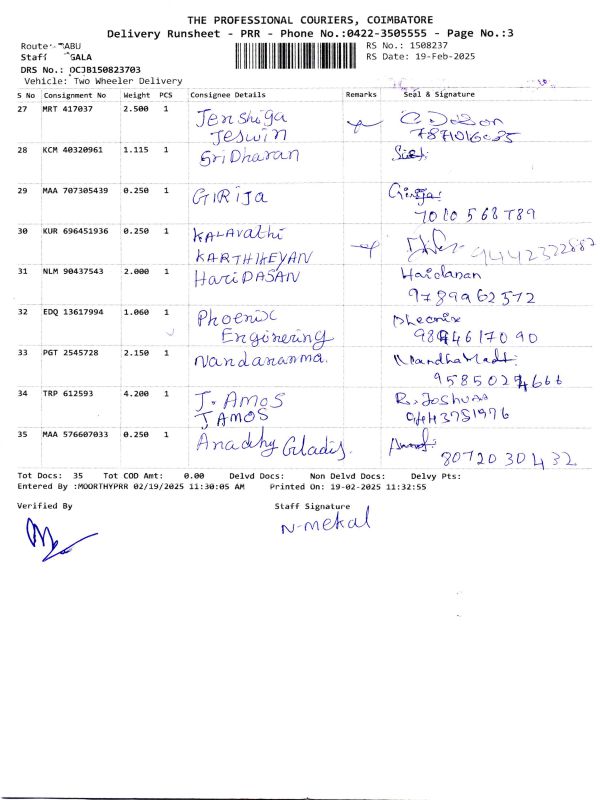 THE PROFESSIONAL COURIERS, COIMBATORE
Delivery Runsheet - PRR - Phone No.:0422-3505555 - Page No.:3
Route: ABU
RS No.: 1508237
Staff GALA
RS Date: 19-Feb-2025
DRS No.: OCJB150823703
Vehicle: Two Wheeler Delivery
S No Consignment No Weight PCS Consignee Details Remarks Seal & Signature
27 MRT 417037 2.500 1 Jenshiga
Jeswin
28 KCM 40320961 1.115 1 Sri Dharan
29 MAA 707305439 0.250 1 GIRIJA Girija
7010 568789
30 KUR 696451936 0.250 1 KALAVathi 9442322882
KARTHIKEYAN
31 NLM 90437543 2.000 1 Hari DASAN
9789962572
32 EDQ 13617994 1.060 1 Phoenix Pheonix
Enginering
33 PGT 2545728 2.150 1 Nandananma.
34 TRP 612593 4.200 1 J. AMOS R. Joshuaa
J AMOS 9443751976
35 MAA 576607033 0.250 1 Gladis
8072030432
Tot Docs: 35 Tot COD Amt: 0.00 Delvd Docs: Non Delvd Docs: Delvy Pts:
Entered By :MOORTHYPRR 02/19/2025 11:30:05 AM Printed On: 19-02-2025 11:32:55
Verified By Staff Signature
N-mekal